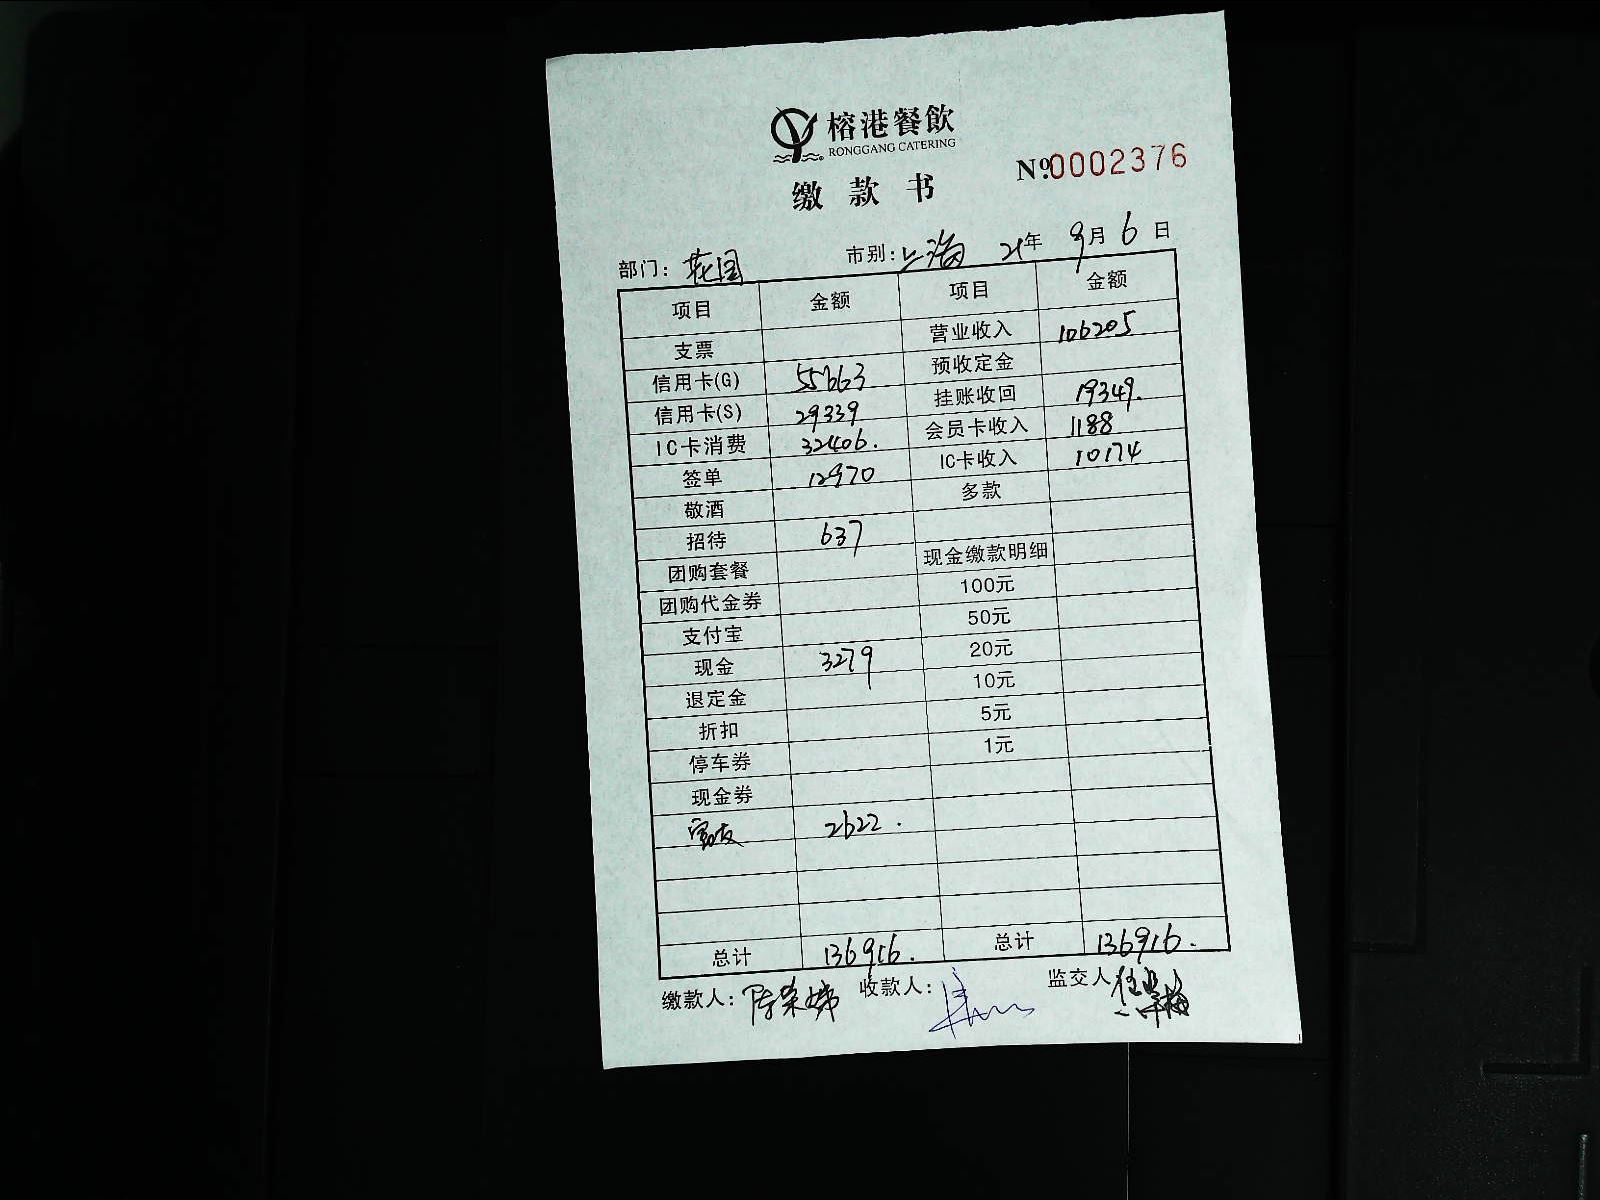 榕港餐飲
RONGGANG CATERING
缴款书 №0002376
部门：花园 市别：上海 21年 9月 6日
项目 金额 项目 金额
支票 营业收入 106205
信用卡(G) 55663 预收定金
信用卡(S) 29339 挂账收回 19349.
IC卡消费 32406. 会员卡收入 1188
签单 12970 IC卡收入 10174
敬酒 多款
招待 637
团购套餐 现金缴款明细
团购代金券 100元
支付宝 50元
现金 3279 20元
退定金 10元
折扣 5元
停车券 1元
现金券
2622.
总计 136916. 总计 136916.
缴款人：陈荣娣 收款人： 监交人